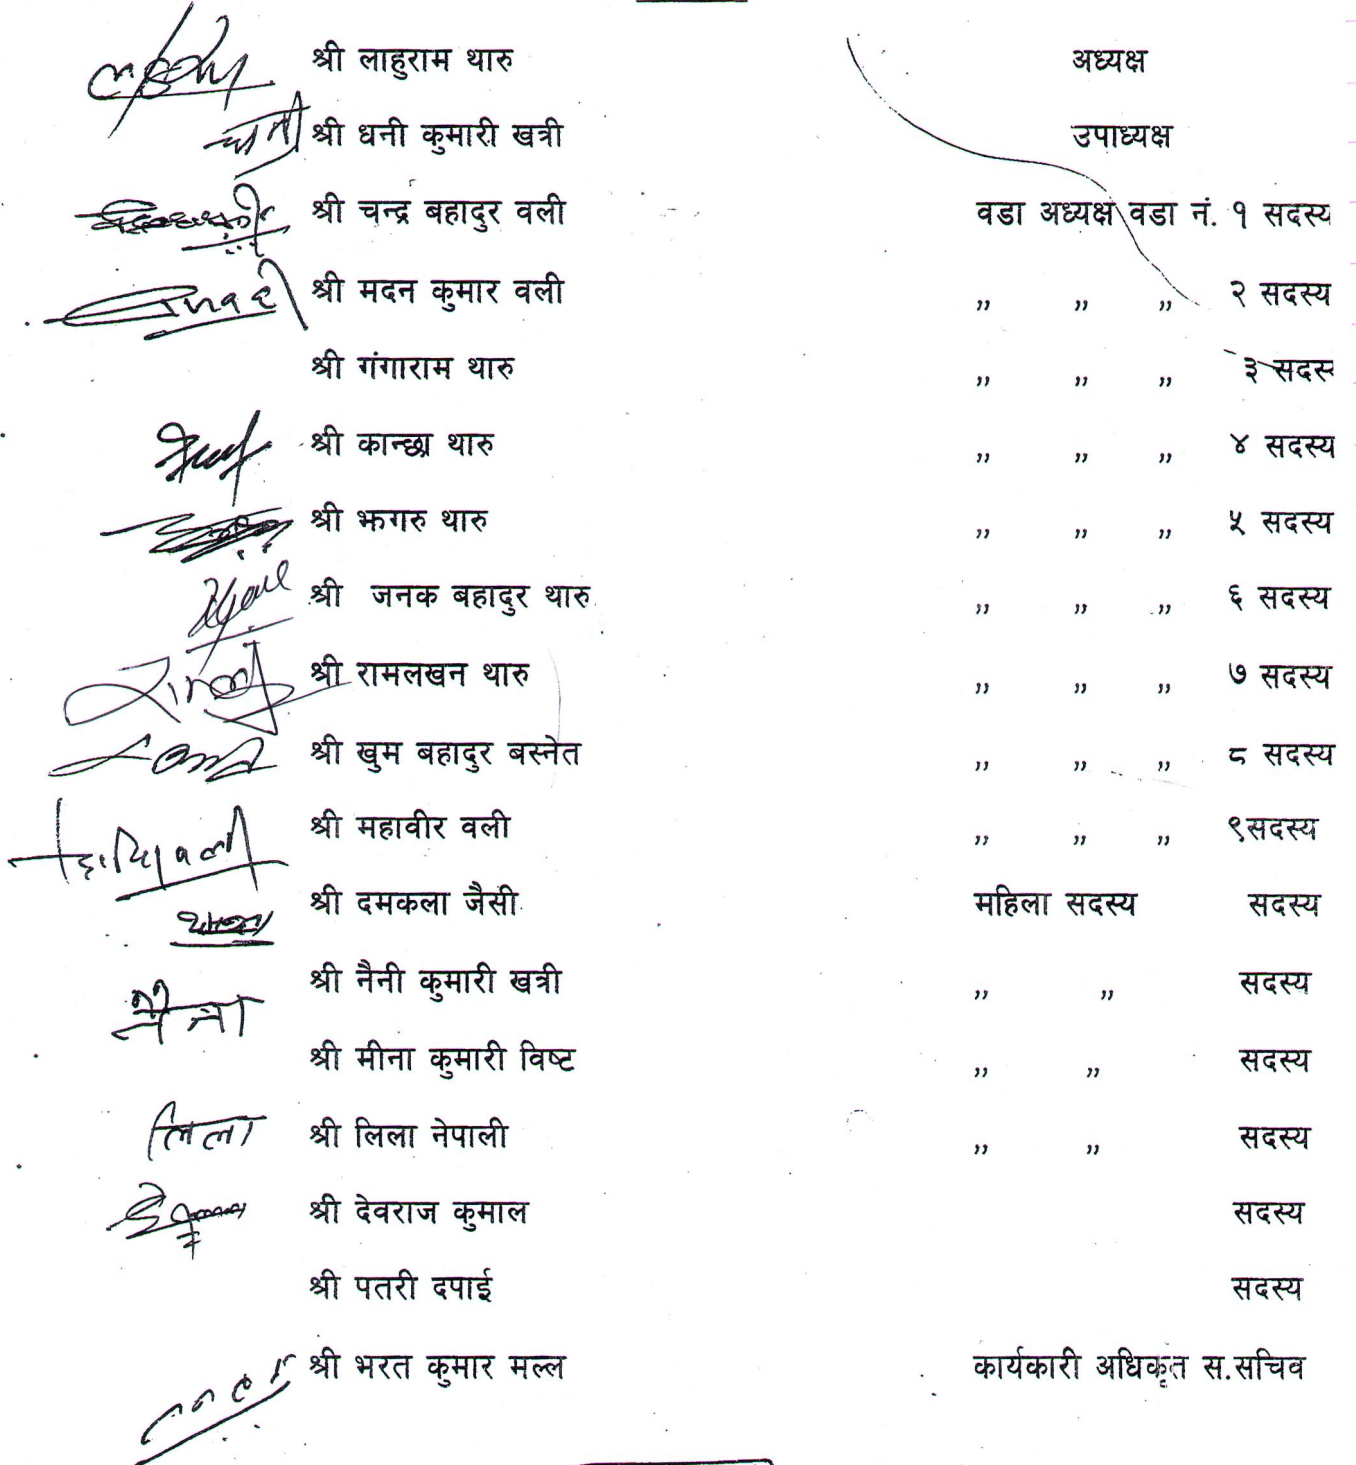 श्री लाहुराम थारु अध्यक्ष
श्री धनी कुमारी खत्री उपाध्यक्ष
श्री चन्द्र बहादुर वली वडा अध्यक्ष वडा नं. १ सदस्य
श्री मदन कुमार वली ,, ,, ,, २ सदस्य
श्री गंगाराम थारु ,, ,, ,, ३ सदस्य
श्री कान्छा थारु ,, ,, ,, ४ सदस्य
श्री झगरु थारु ,, ,, ,, ५ सदस्य
श्री जनक बहादुर थारु ,, ,, ,, ६ सदस्य
श्री रामलखन थारु ,, ,, ,, ७ सदस्य
श्री खुम बहादुर बस्नेत ,, ,, ,, ८ सदस्य
श्री महावीर वली ,, ,, ,, ९सदस्य
श्री दमकला जैसी महिला सदस्य सदस्य
श्री नैनी कुमारी खत्री ,, ,, सदस्य
श्री मीना कुमारी विष्ट ,, ,, सदस्य
लिला श्री लिला नेपाली ,, ,, सदस्य
श्री देवराज कुमाल सदस्य
श्री पतरी दपाई सदस्य
श्री भरत कुमार मल्ल कार्यकारी अधिकृत स.सचिव